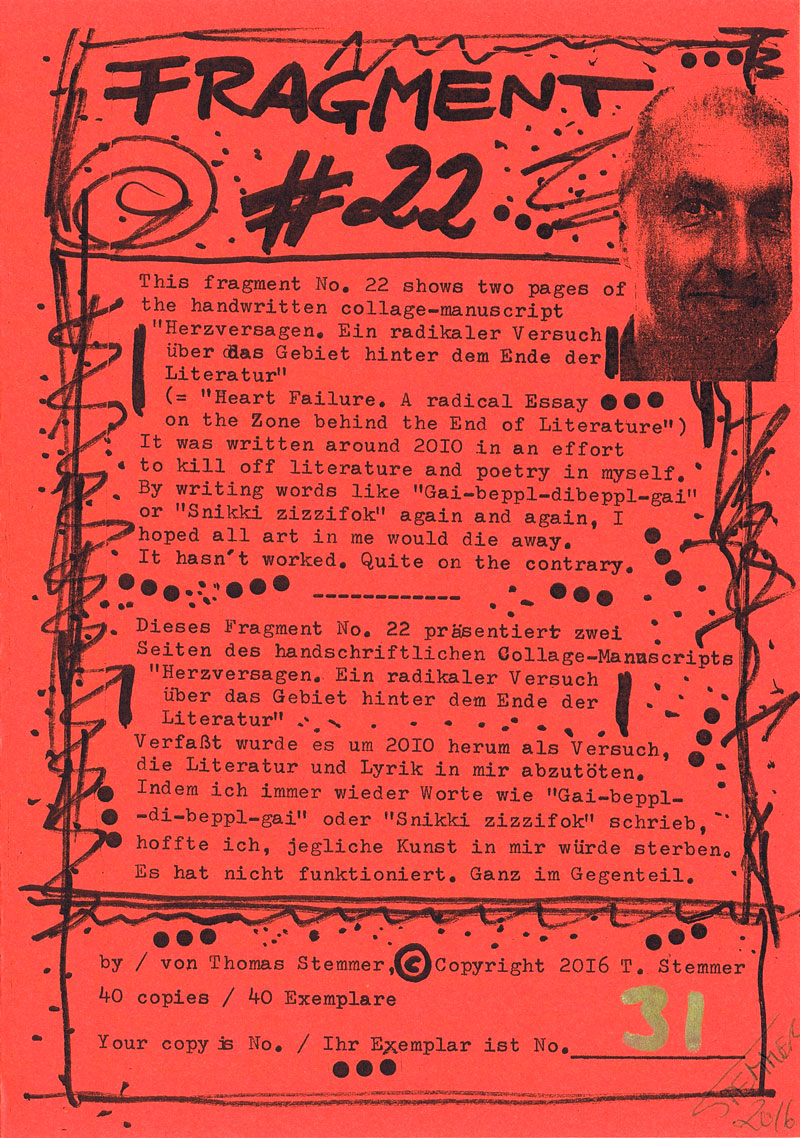 FRAGMENT
#22
This fragment No. 22 shows two pages of
the handwritten collage-manuscript
"Herzversagen. Ein radikaler Versuch
über das Gebiet hinter dem Ende der
Literatur"
(= "Heart Failure. A radical Essay
on the Zone behind the End of Literature")
It was written around 2010 in an effort
to kill off literature and poetry in myself.
By writing words like "Gai-beppl-dibeppl-gai"
or "Snikki zizzifok" again and again, I
hoped all art in me would die away.
It hasn't worked. Quite on the contrary.
------------
Dieses Fragment No. 22 präsentiert zwei
Seiten des handschriftlichen Collage-Manuscripts
"Herzversagen. Ein radikaler Versuch
über das Gebiet hinter dem Ende der
Literatur"
Verfaßt wurde es um 2010 herum als Versuch,
die Literatur und Lyrik in mir abzutöten.
Indem ich immer wieder Worte wie "Gai-beppl-
-di-beppl-gai" oder "Snikki zizzifok" schrieb,
hoffte ich, jegliche Kunst in mir würde sterben.
Es hat nicht funktioniert. Ganz im Gegenteil.
by / von Thomas Stemmer, © Copyright 2016 T. Stemmer
40 copies / 40 Exemplare
Your copy is No. / Ihr Exemplar ist No. 31
STEMMER
2016